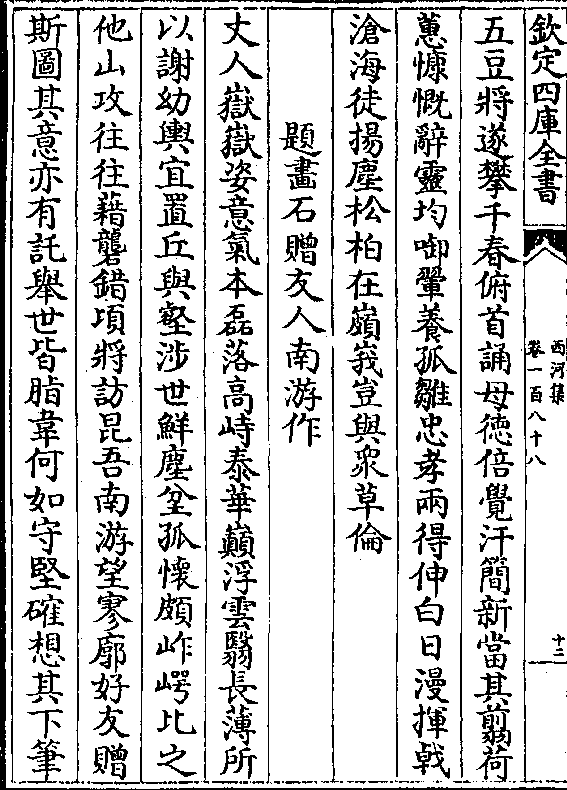 欽定四庫全書
西河集
卷一百八十八
十二
五豆將遂攀千春俯首誦母徳倍覺汗簡新當其翦荷
蕙慷慨辭靈均啣鞶養孤雛忠孝兩得伸白日漫揮戟
滄海徒揚塵松柏在巔峩豈與衆草倫
題畫石贈友人南游作
丈人嶽嶽姿意氣本磊落高峙泰華巔浮雲翳長薄所
以謝幼輿宜置丘與壑涉世鮮塵坌孤懷頗岞崿比之
他山攻往往藉礱錯項將訪昆吾南游望寥廓好友贈
斯圖其意亦有託舉世皆脂韋何如守堅確想其下筆